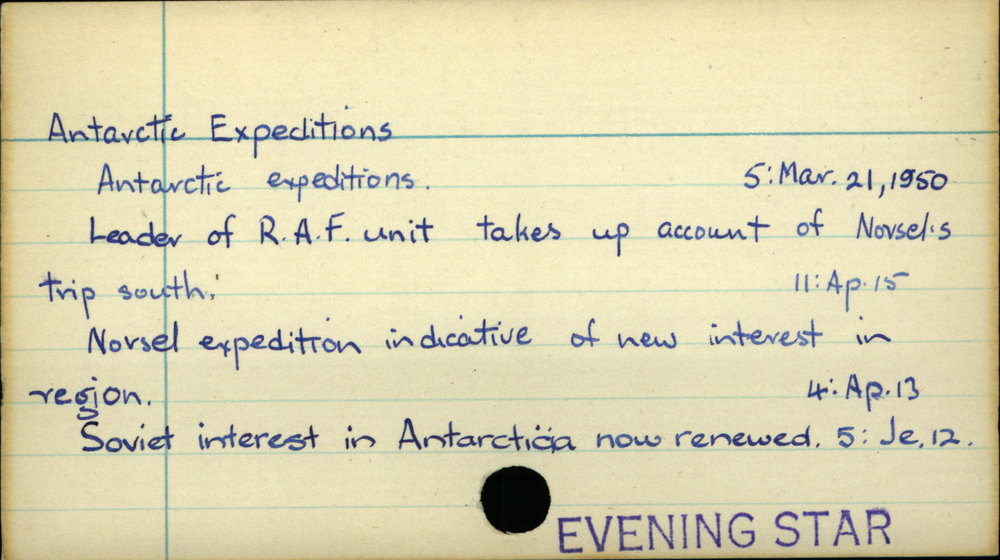 Antarctic Expeditions
Antarctic expeditions. 5: Mar. 21, 1950
Leader of R.A.F. unit takes up account of Norsel's
trip south. 11: Ap. 15
Norsel expedition indicative of new interest in
region. 4: Ap. 13
Soviet interest in Antarctica now renewed. 5: Je. 12.
EVENING STAR